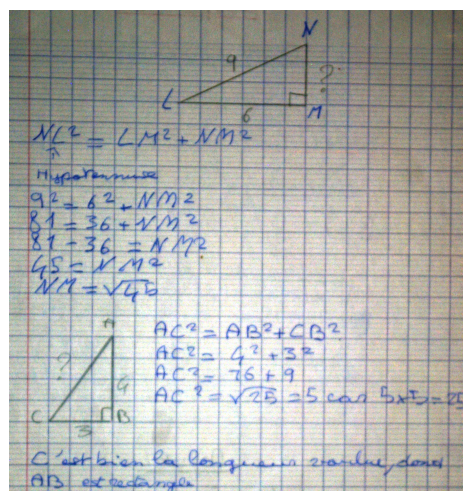 N
9
?
L
6
M
NL² = LM² + NM²
Hypotennuse
9² = 6² + NM²
81 = 36 + NM²
81 - 36 = NM²
45 = NM²
NM = √45
A
AC² = AB² + CB²
?
AC² = 4² + 3²
4
AC² = 16 + 9
AC² = √25 = 5 car 5x5 = 25
C
B
3
C'est bien la longueur voulue, donc
AB est rectangle